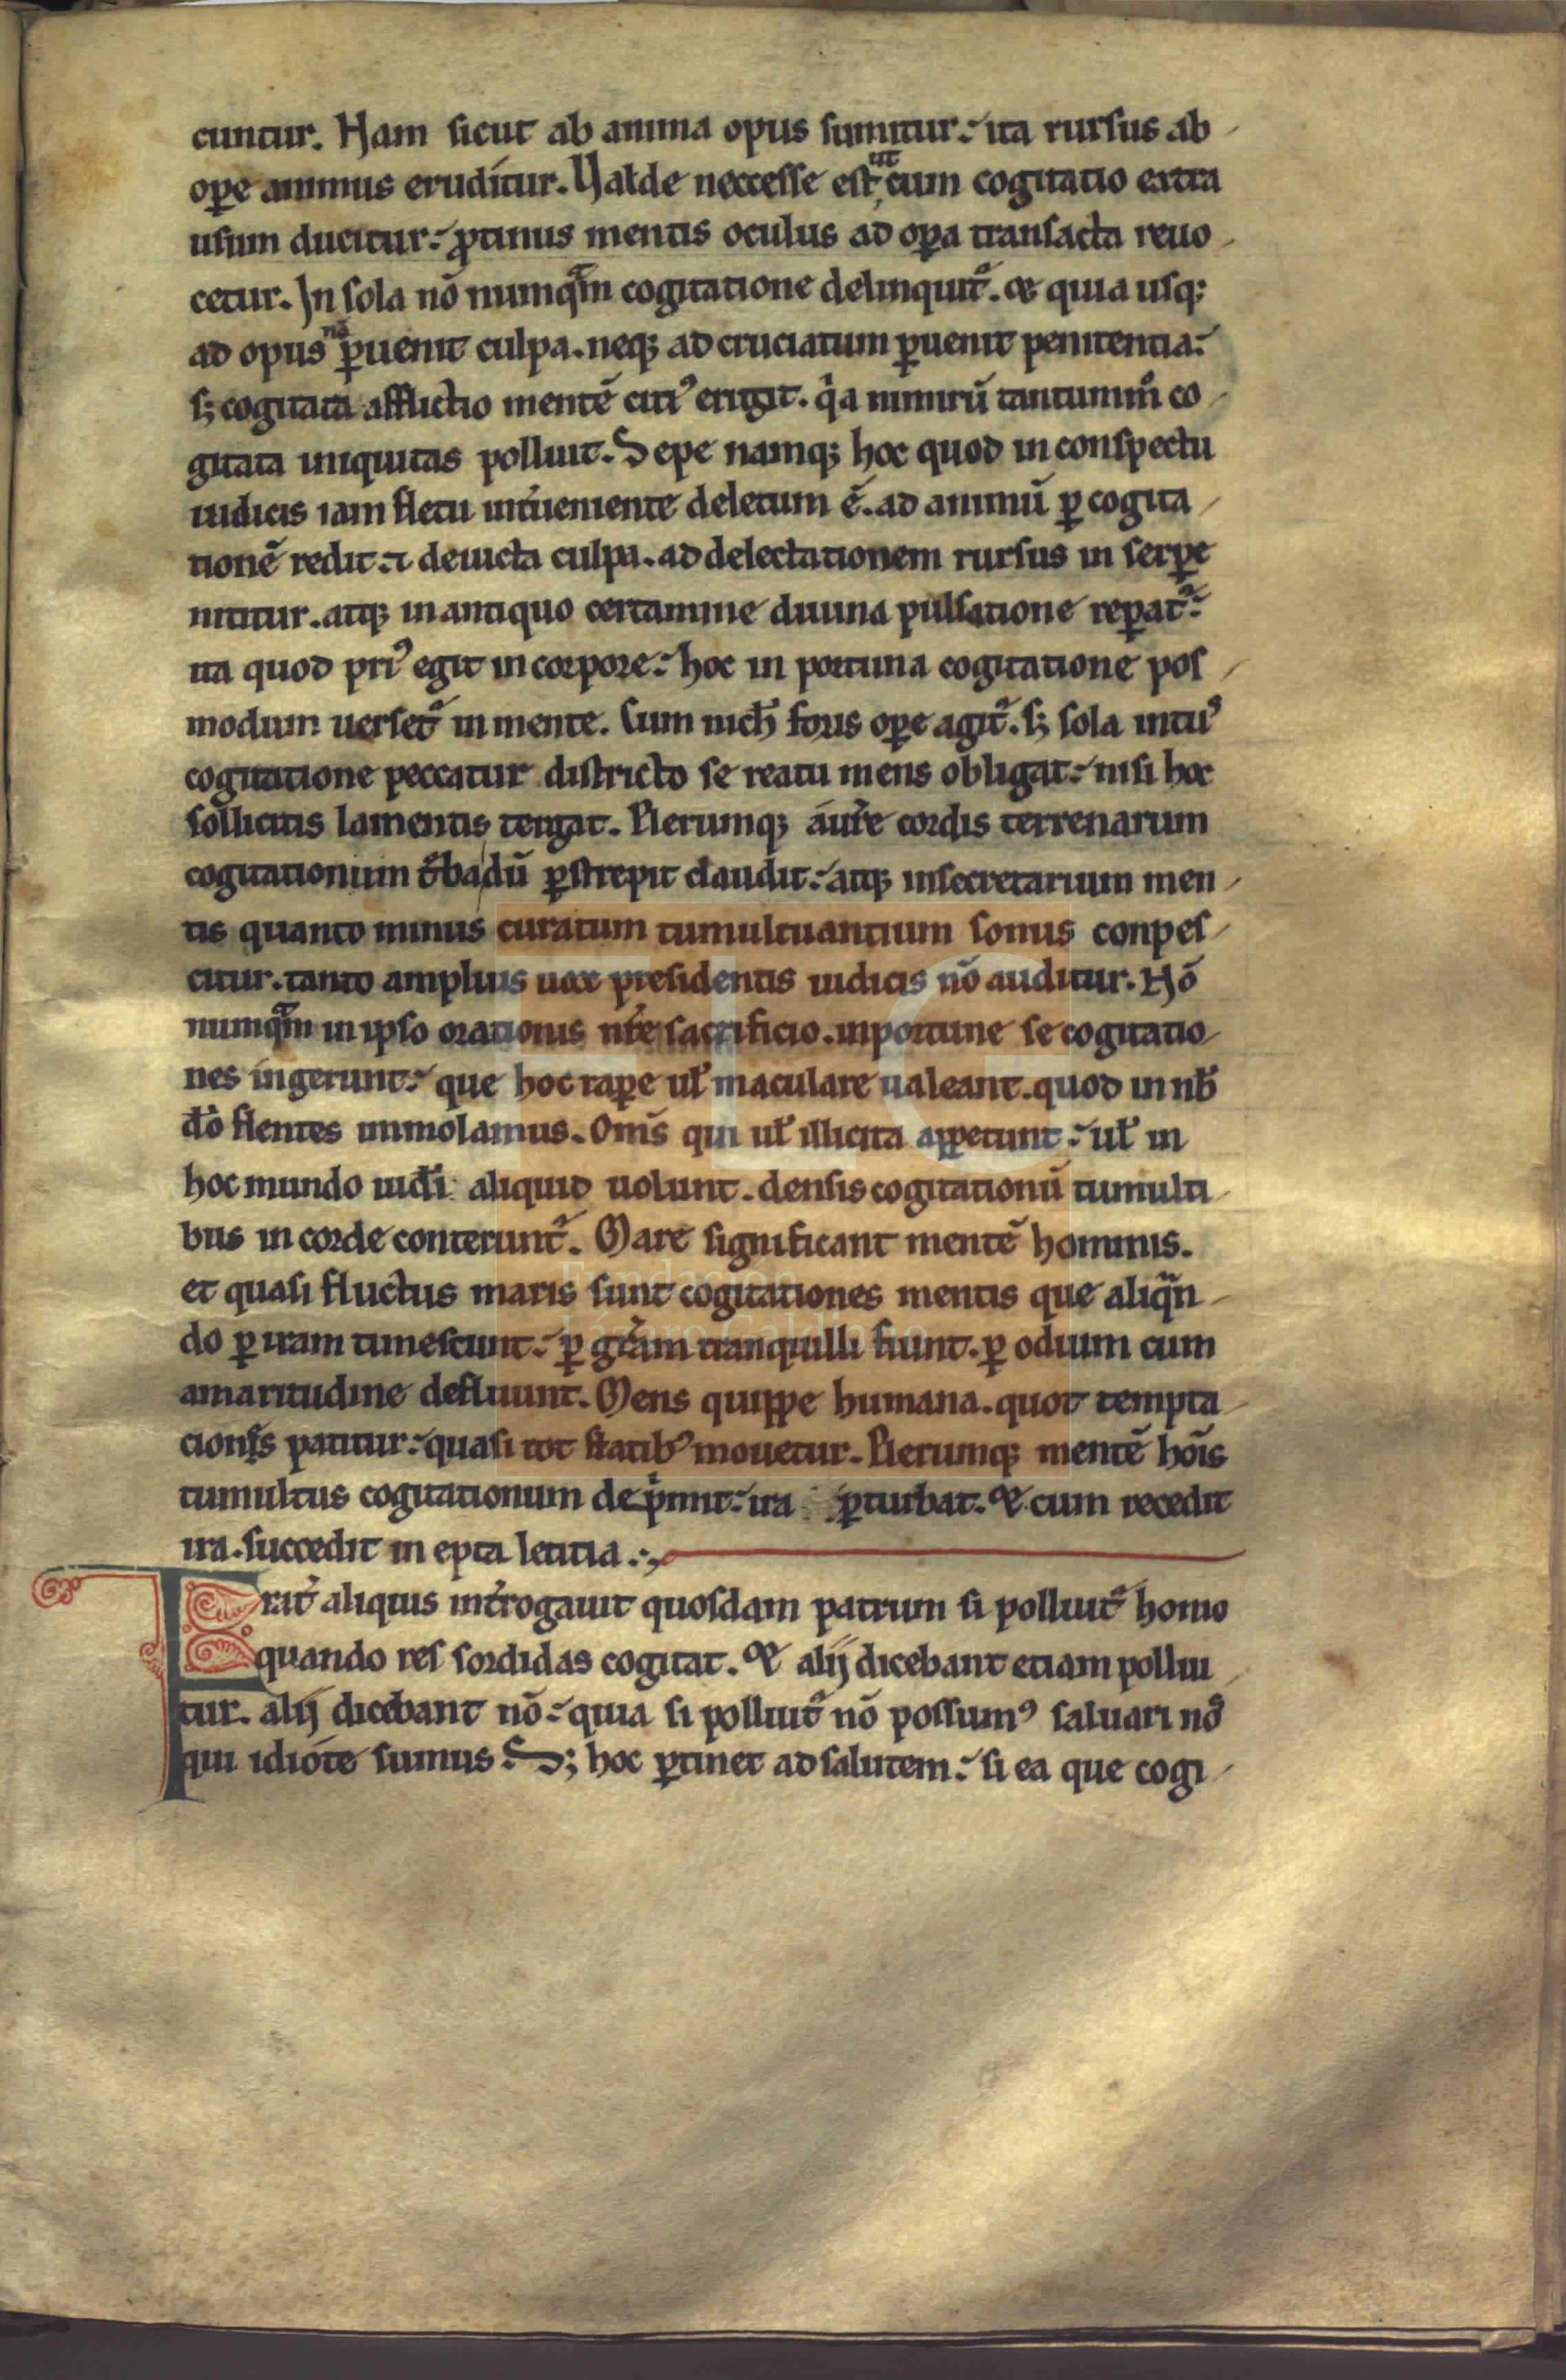 cuntur. Nam sicut ab anima opus sumitur: ita rursus ab
oꝑe animus eruditur. Valde neccesse est, ut cum cogitatio extra
usum ducitur: ꝓtinus mentis oculus ad oꝑa transacta reuo
cetur. In sola nō numq̃m cogitatione delinquit᷑. & quia usq;
ad opus nō ꝑuenit culpa. neq; ad cruciatum ꝑuenit penitentia:
s; cogitata afflictio mentē citiꝰ erigit. qͥa nimirū tantummͦ co
gitata iniquitas polluit. Sepe namq; hoc quod in conspectu
iudicis iam fletu int̾ueniente deletum ē. ad animū ꝑ cogita
tionē redit. ⁊ deuicta culpa. ad delectationem rursus in serꝑe
nititur. atq; in antiquo certamine diuina pulsatione reꝑat᷑:
ita quod priꝰ egit in corpore: hoc in portuna cogitatione pos
modum uerset᷑ in mente. Cum nich̄ foris oꝑe agit᷑. s; sola intuꝰ
cogitatione peccatur districto se reatu mens obligat: nisi hoc
sollicitis lamentis tergat. Plerumq; aure cordis terrenarum
cogitationum t᷑badū ꝑstrepit claudit: atq; insecretarium men
tis quanto minus curatum tumultuantium sonus conpes
citur. tanto amplius uox presidentis iudicis nō auditur. Nō
numq̃m in ipso orationis nr̄e sacrificio. inportune se cogitatio
nes ingerunt: que hoc raꝑe ul̄ maculare ualeant. quod in nb̄
dō flentes immolamus. Om̄s qui ul̄ illicita appetunt: ul̄ in
hoc mundo uid̄i aliquid uolunt. densis cogitationū tumulti
bus in corde conterunt᷑. Mare significant mentē hominis.
et quasi fluctus maris sunt cogitationes mentis que aliq̃n
do ꝑ iram tumescunt: ꝑ gr̄am tranquilli fiunt. ꝑ odium cum
amaritudine defluunt. Mens quippe humana. quot tempta
cionēs patitur: quasi tot statibꝰ mouetur. Plerumq; mentē hoīs
tumultus cogitationum dep̍mit: ira ꝑturbat. & cum recedit
ira. succedit in epta letitia.
Frat̾ aliquis int̾rogauit quosdam patrum si polluit᷑ homo
quando res sordidas cogitat. & alij dicebant etiam pollui
tur. alij dicebant nō: quia si polluit᷑ nō possumꝰ saluari nos
qui idiote sumus S; hoc ꝑtinet ad salutem: si ea que cogi
Fundación
Lázaro Galdiano